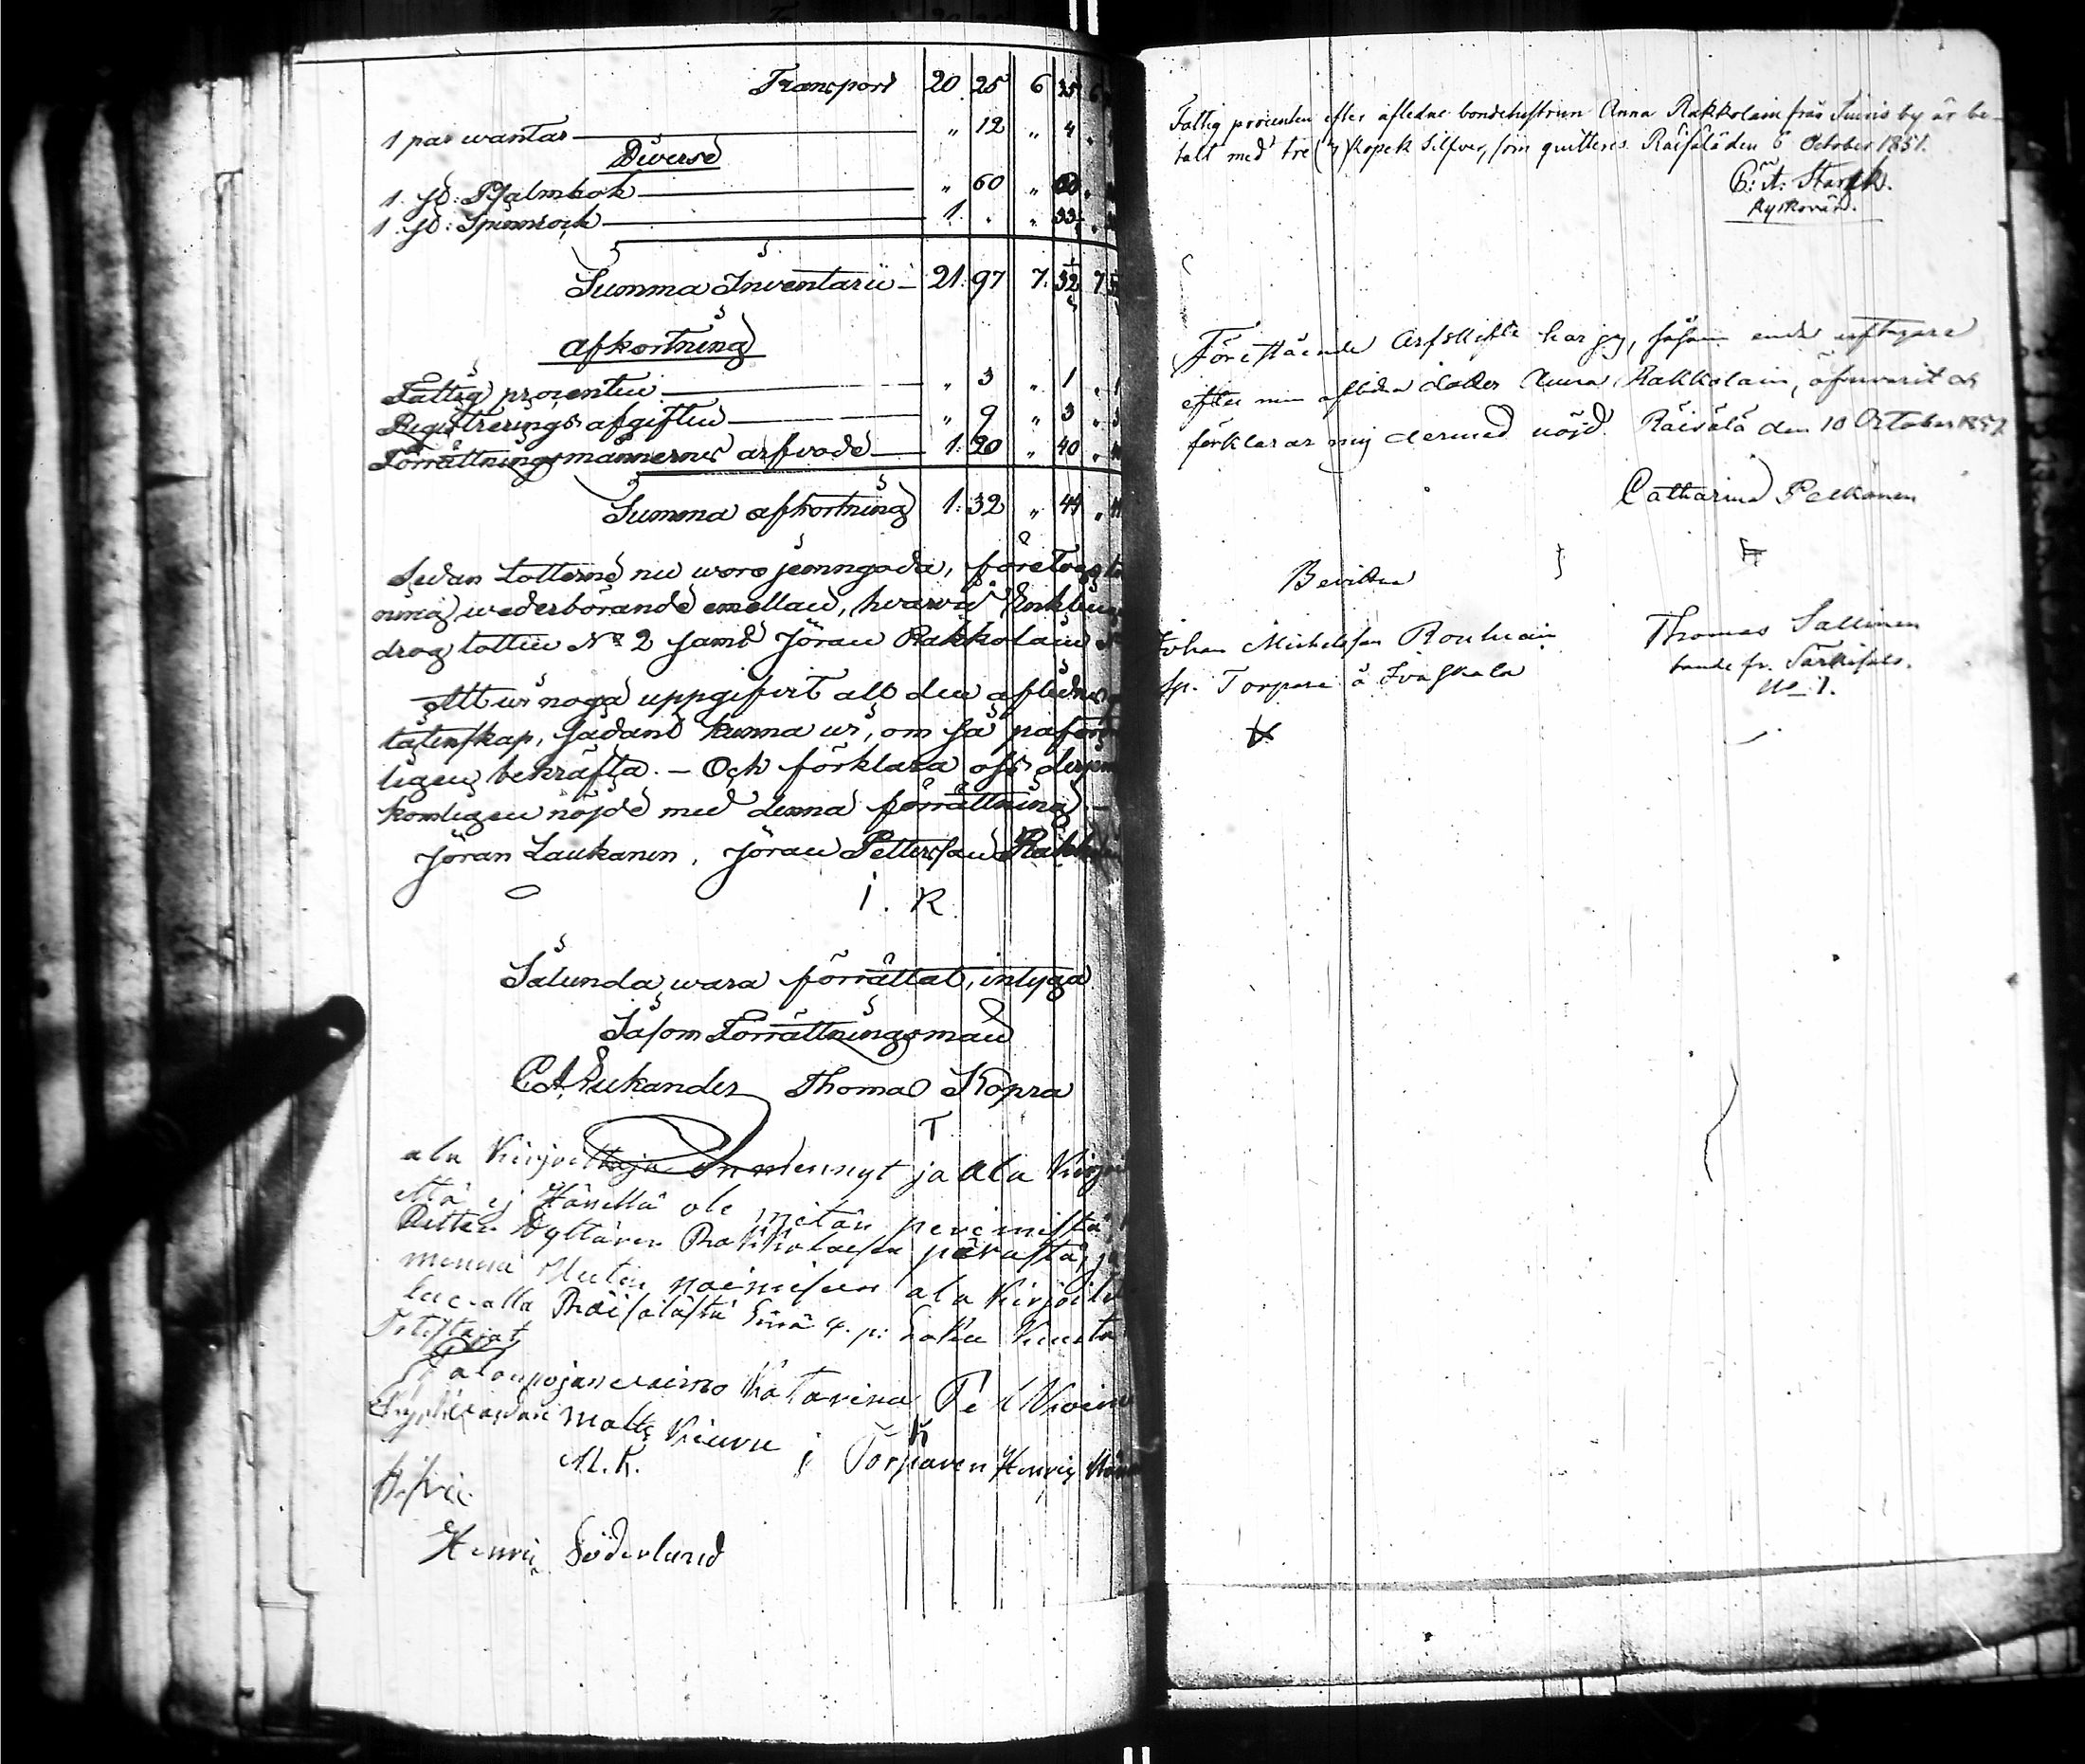 Transport 20 25 6 35 6
1 par wantar " 12 " 4 "
Diverse
1 st: Psalmbok " 60 " 20 "
1 st: Spinnrock 1 . " 33 "
Summa Inventarii 21. 97 7. 32 7
Afkortning
Fattig procenten " 3 " 1 " 1
Registrerings afgiften " 9 " 3 " 3
Förrättningsmännernes arfvode 1. 20 " 40 "
Summa afkortning 1. 32 " 44 "
Sedan lotterne nu woro jemngoda, företogs
ning wederbörande emellan, hvarvid Enkling
drog lotten No 2 samt Jöran Rakkolain
Att wi noga uppgifvit all den aflednes
låtenskap, sådant kunna wi, om så påford
ligen bekräfta. - Och förklara oss
komligen nöjde med denna förrättning. -
Jöran Laukanen, Jöran Pettersson Rakk
I. R
Sålunda wara förrättat, intyga
Såsom Förrättningsman
C A Eukander Thomas Kopra
T
ala Kirjoittaja On mennyt ja ala Kirjoi
että ej Hänellä ole mitän perimistä
Petter Dyttären Rakkolaisen perästä, ja
mennä naimisen ala Kirjoit
Räisälästä Sinä 4. p: Loka Kuuta
Totistajat
Talonpojan waimo Katarina Pelkoin
Matts Kiuru Torparen Henrig
M. K. K
Henric Söderlund
Fattig procenten efter afledne bondehustrun Anna Rakkolain från Tiuris by är be-
talt med tre (3) Kopek Silfver, som quitteres. Räisälä den 6 October 1851.
Kyrkovärd.
Förestående Arfskifte har jag, såsom enda arftagare
efter min aflidna dotter Anna Rakkolain, och
förklarar mig dermed nöjd. Räisälä den 10 October 1852
Catharina Pelkonen
Bevittna
Johan Michelsson Ronkain Thomas Sallinen
Torpare å Ivaskala bonde fr. Särkisalo.
No 1.